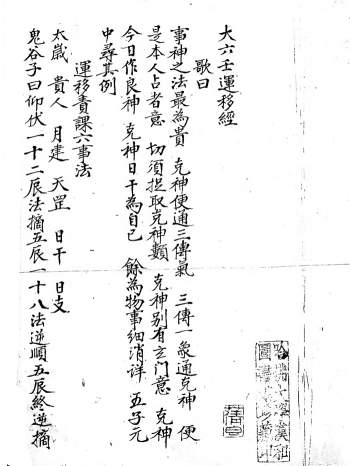 大六壬運移經
歌曰
事神之法最為貴 克神便通三傳氣 三傳一象通克神 便
是本人占者意 切須捉取克神類 克神別有玄門意 克神
今日作良神 克神日干為自己 餘為物事細消詳 五子元
中尋其例
運移責課六事法
太歲 貴人 月建 天罡 日干 日支
鬼谷子曰仰伏一十二辰法摘五辰一十八法逆順五辰終逆摘